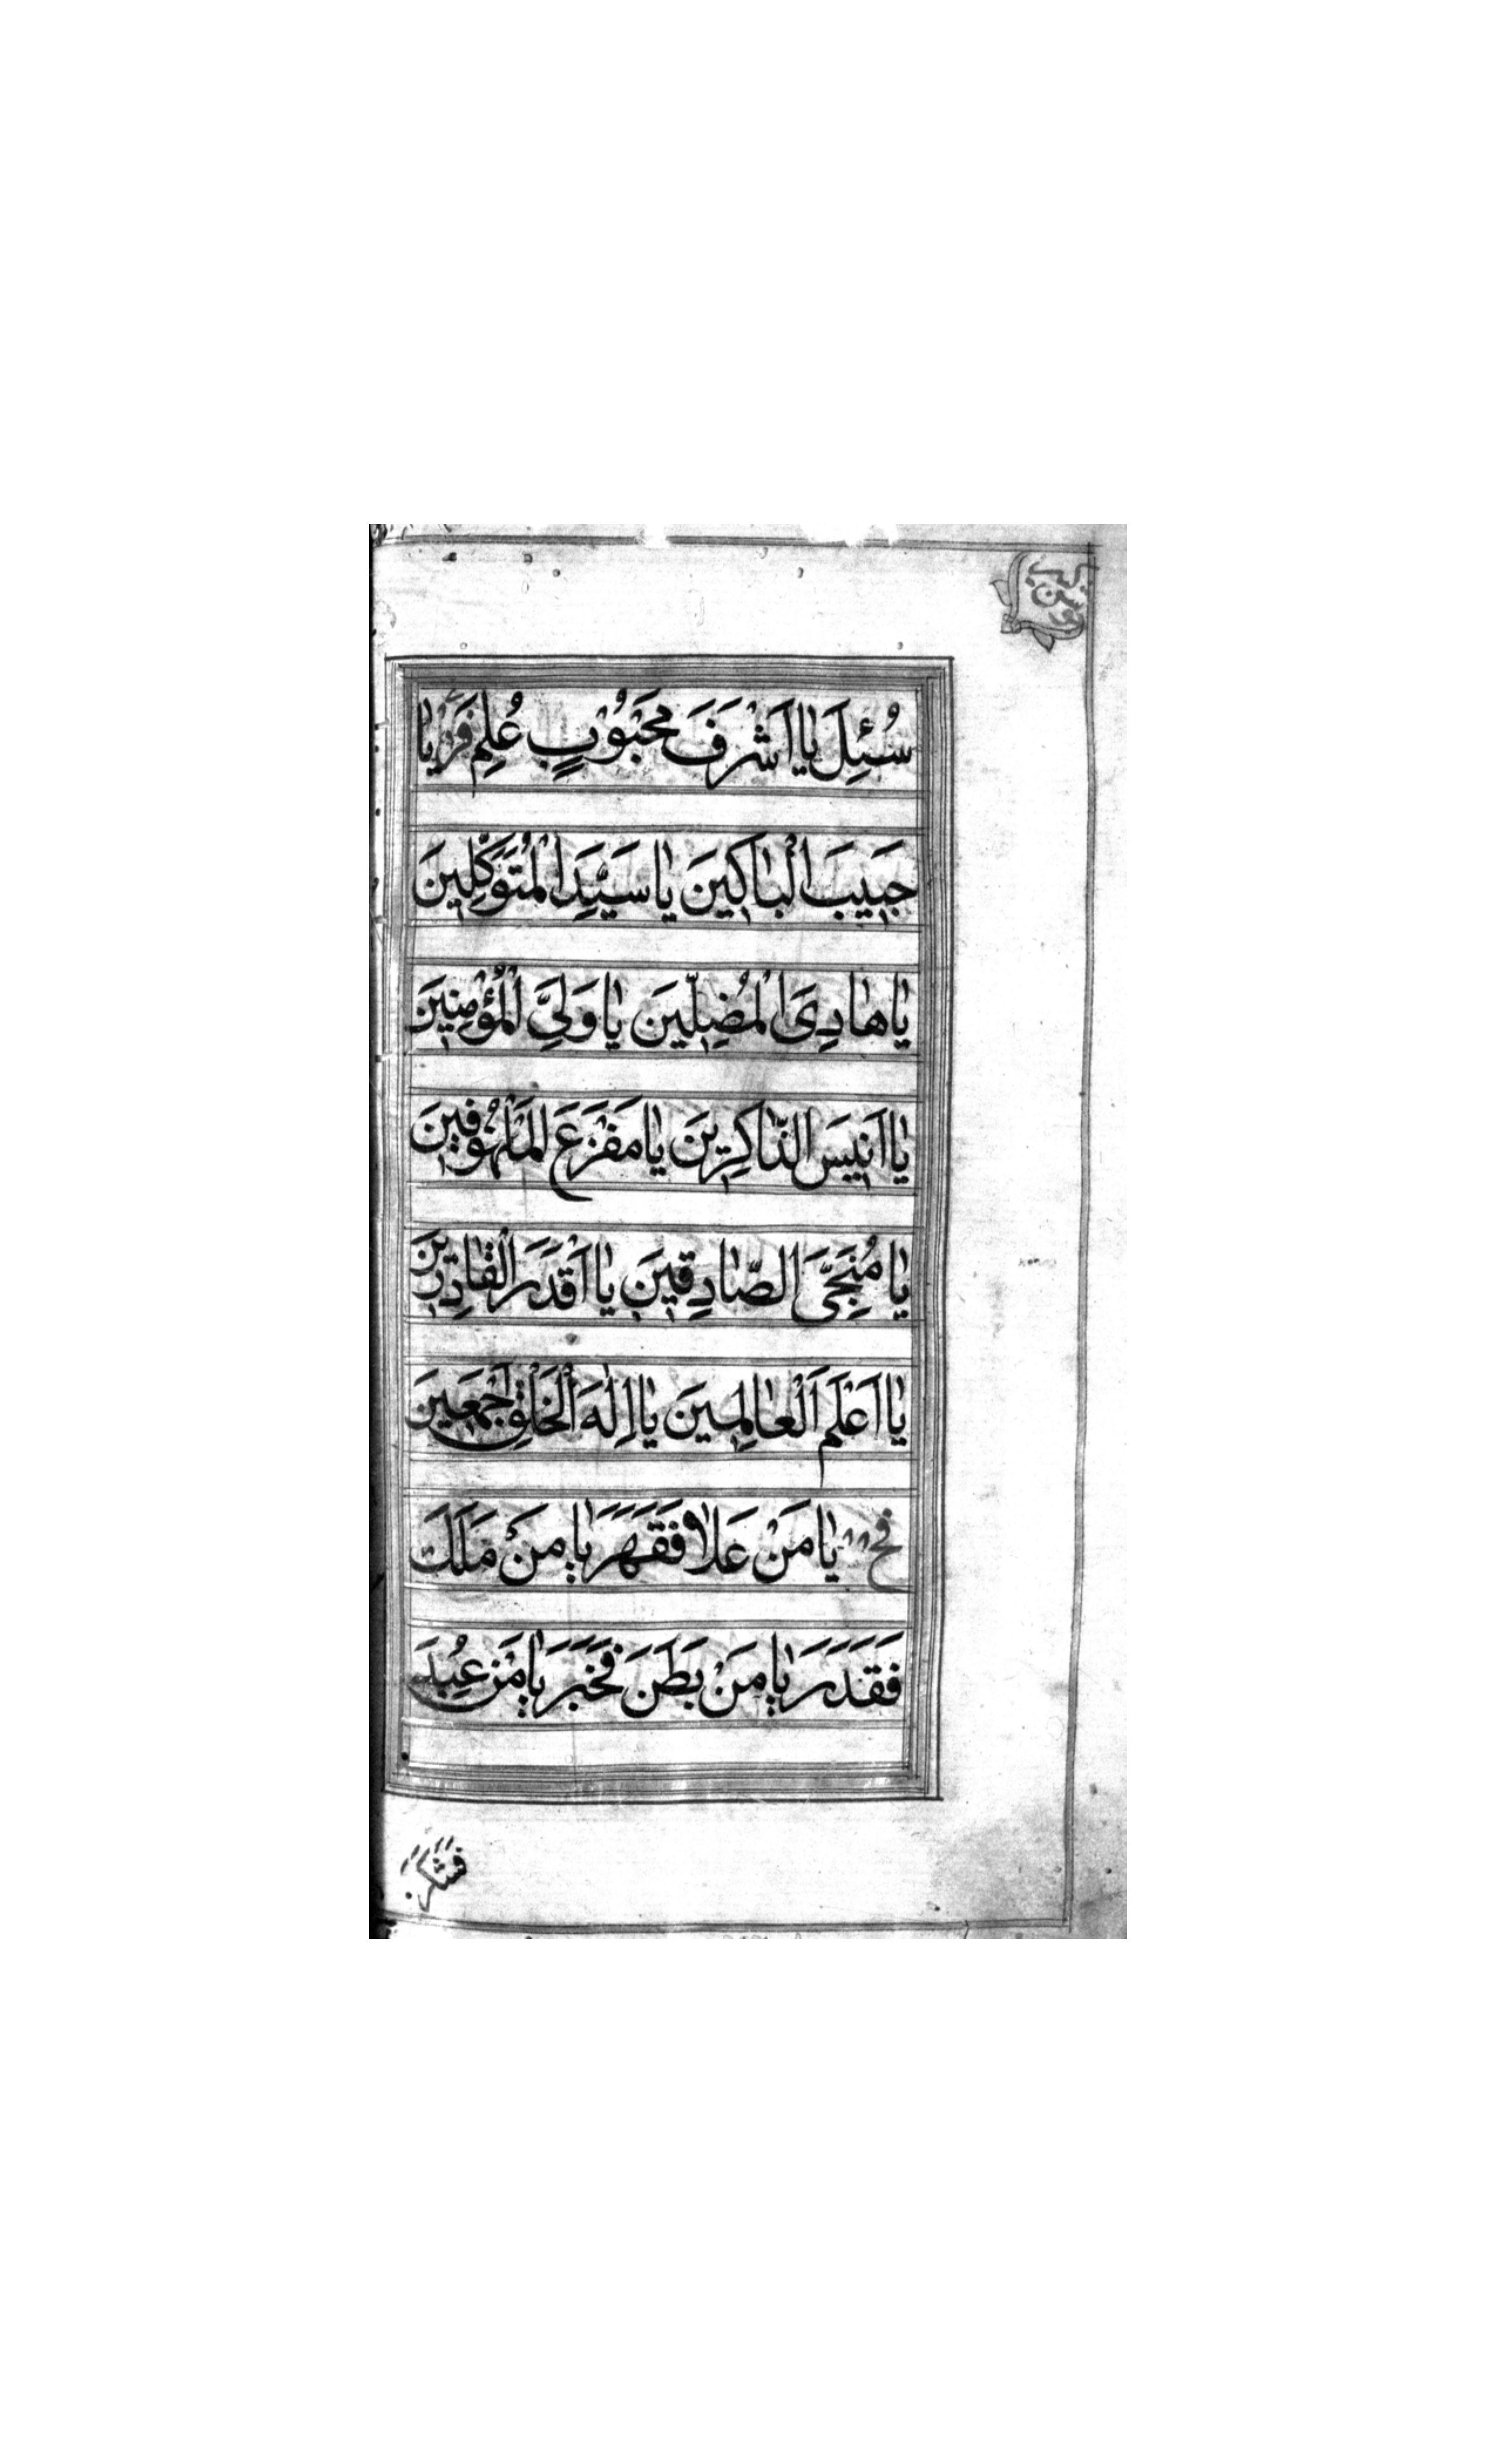 سُئِلَ يٰا اَشْرَفَ مَحْبُوْبٍ عُلِمَ فَرٌ يٰا
حَبِيبَ الْبٰاكِينَ يٰا سَيِّدَ الْمُتَوَكِّلِينَ
يٰا هٰادِىَ الْمُضِلّينَ يٰا وَلِىَّ الْمُؤْمِنِينَ
يٰا اَنِيسَ الذّٰاكِرِينَ يٰا مَفْزَعَ الْمَلْهُوفِينَ
يٰا مُنْجِىَ الصّٰادِقِينَ يٰا اَقْدَرَ الْقٰادِرِينَ
يٰا اَعْلَمَ الْعٰالِمِينَ يٰا اِلٰهَ الْخَلْقِ اَجْمَعِينَ
فح يٰا مَنْ عَلاٰ فَقَهَرَ يٰا مَنْ مَلَكَ
فَقَدَرَ يٰا مَنْ بَطَنَ فَخَبَرَ يٰا مَنْ عُبِدَ
فَشَكَرَ